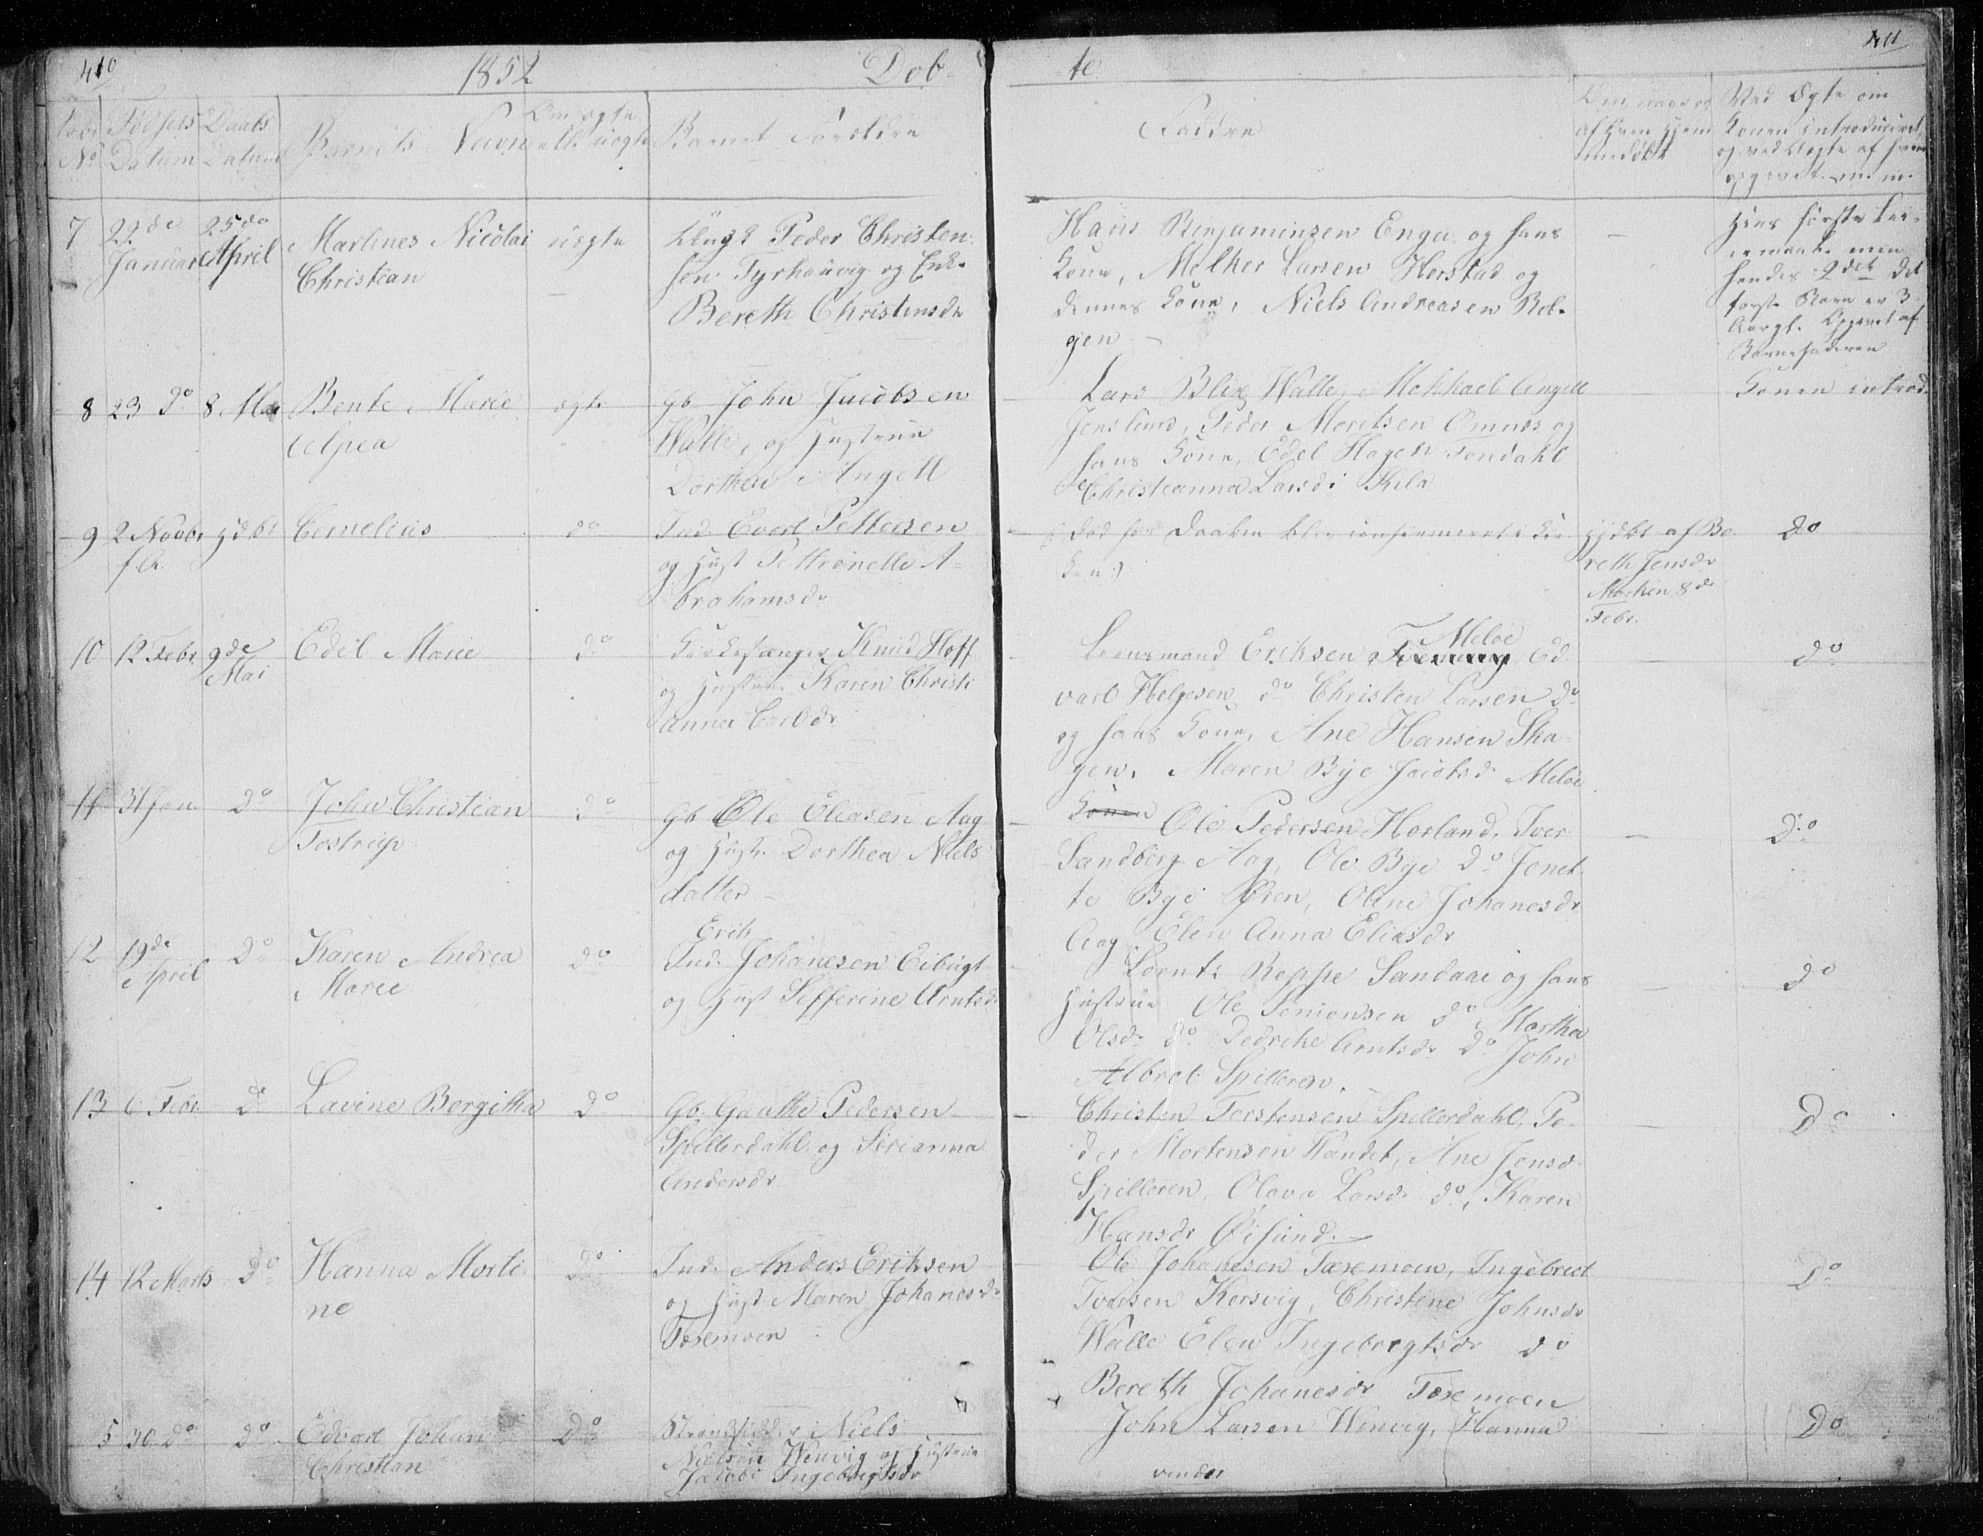 410
1852
Døb-
te
411
Løbe No
Fødsels Datum
Daabs Datum
Barnets Navn
Om ægte
eller uægte
Barnet Forældre
Faddre
Ved Ægte om
Konen introduceret,
og ved Uægte af hvem
7
22de
Januar
25de
April
Martines Nicolai
Christian
uægte
Ungk Peder Christen-
sen Tyrhaüvig og Enke
Bereth Christensdr
Hans Benjaminsen Enga og hans
Kone, Melker Larsen Herstad og
dennes Kone, Niels Andreasen Bol-
gen
Hans første Lei-
ermaal men
hendes 2det det
første Barn er 3
Aargl. Opgivet af
Barnefaderen
8
23 Do
8 Mai
Bente Marie
Elpea
ægte
Gb John Jacobsen
Walle, og Hustrue
Dorthea Angell
Lars Blix Walle, Mekkael Angell
Jenslund, Peder Moretsen Omnes og
hans Kone, Edel Hagen Fondahl
Christianna Larsdr Kila
Konen introd.
9
2 Novbr
f. A.
Cornelius
do
Ind. Evert Pettersen
og Hust Pettronelle A-
brahamsdr
død før Daaben blev confirmeret i Kir-
ken:)
Hjdbt af Be
reth Jensdr
8de
Febr.
Do
10
12 Febr
9de
Mai
Edel Marie
do
Kirkesanger Knud Hoff
og Hustrue Karen Christi
anna Carlsdr
Meløe
Leensmand Eriksen Ed
vard Helgesen do Christen Larsen do
og hans Kone, Ane Hansen Ska-
gen, Maren Bye Jacobsdr Meløe
Do
11
31 Jan
Do
John Christian
Tostrup
do
Gb Ole Eliasen Aag
og Hustr. Dorthea Niels
datter
Konen
Ole Pedersen Horland, Iver
Sandberg Aag, Ole Bye do Jonet-
te Bye Øren, Oline Johanesdr
Aag Elen Anna Eliasdr
Do
12
19de
April
Do
Karen Andrea
Marie
do
Erik
Ind. Johanesen Eibugt
og Hust Sefferine Arntsdr
Lornts Reppe Sandaae og hans
Hustrue Ole Simonsen do Martha
Olsdr do Dedreke Arntsdr Do John
Albret Spilleren.
do
13
6 Febr
Do
Lavine Bergitha
do
Gb. Gautte Pedersen
Spillerdahl og Serianna
Andersdr
Christen Torstensen Spillerdahl, Pe-
der Mortensen Vandet, Ane Jensdr
Spilleren, Olava Larsdr do, Karen
Hansdr Øisund.
Do
14
12 Marts
Do
Hanna Marti-
ne
do
Ind. Anders Eriksen
og Hust Maren Johanesdr
Toremoen
Ole Johanesen Toremoen, Ingebrect
Iversen Korsvig, Christine Johnsdr
Walle Elen Ingebregtsdr do
Bereth Johanesdr Toremoen
Do
5
30 Do
Do
Edvart Johan
Christian
Do
Strandsidder Niels
Nielsen Wenvig og Hustrue
Jacobe Ingebregtsdr
John Larsen Wenvig, Hanna
vender
Do